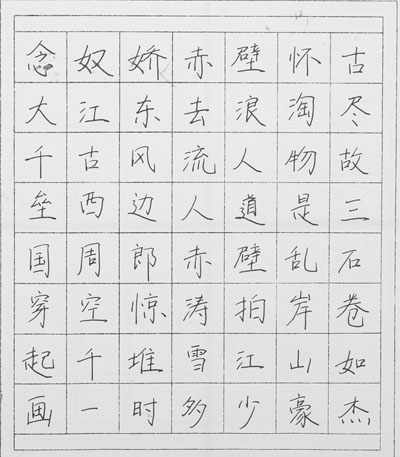 念奴娇赤壁怀古
大江东去浪淘尽
千古风流人物故
垒西边人道是三
国周郎赤壁乱石
穿空惊涛拍岸卷
起千堆雪江山如
画一时多少豪杰